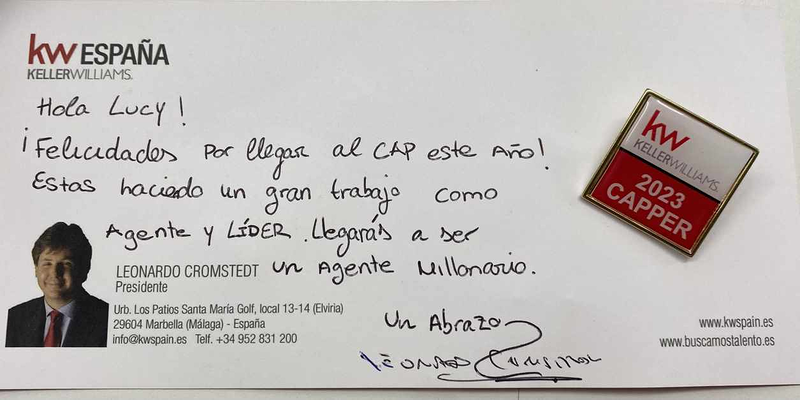 kw ESPAÑA
KELLERWILLIAMS.
Hola Lucy!
¡Felicidades por llegar al CAP este Año!
Estas haciedo un gran trabajo como
Agente y LÍDER. Llegarás a ser
un Agente Millonario.
LEONARDO CROMSTEDT
Presidente
Urb. Los Patios Santa María Golf, local 13-14 (Elviria)
29604 Marbella (Málaga) - España
info@kwspain.es Telf. +34 952 831 200
Un Abrazo
www.kwspain.es
www.buscamostalento.es
kw
KELLERWILLIAMS.
2023
CAPPER